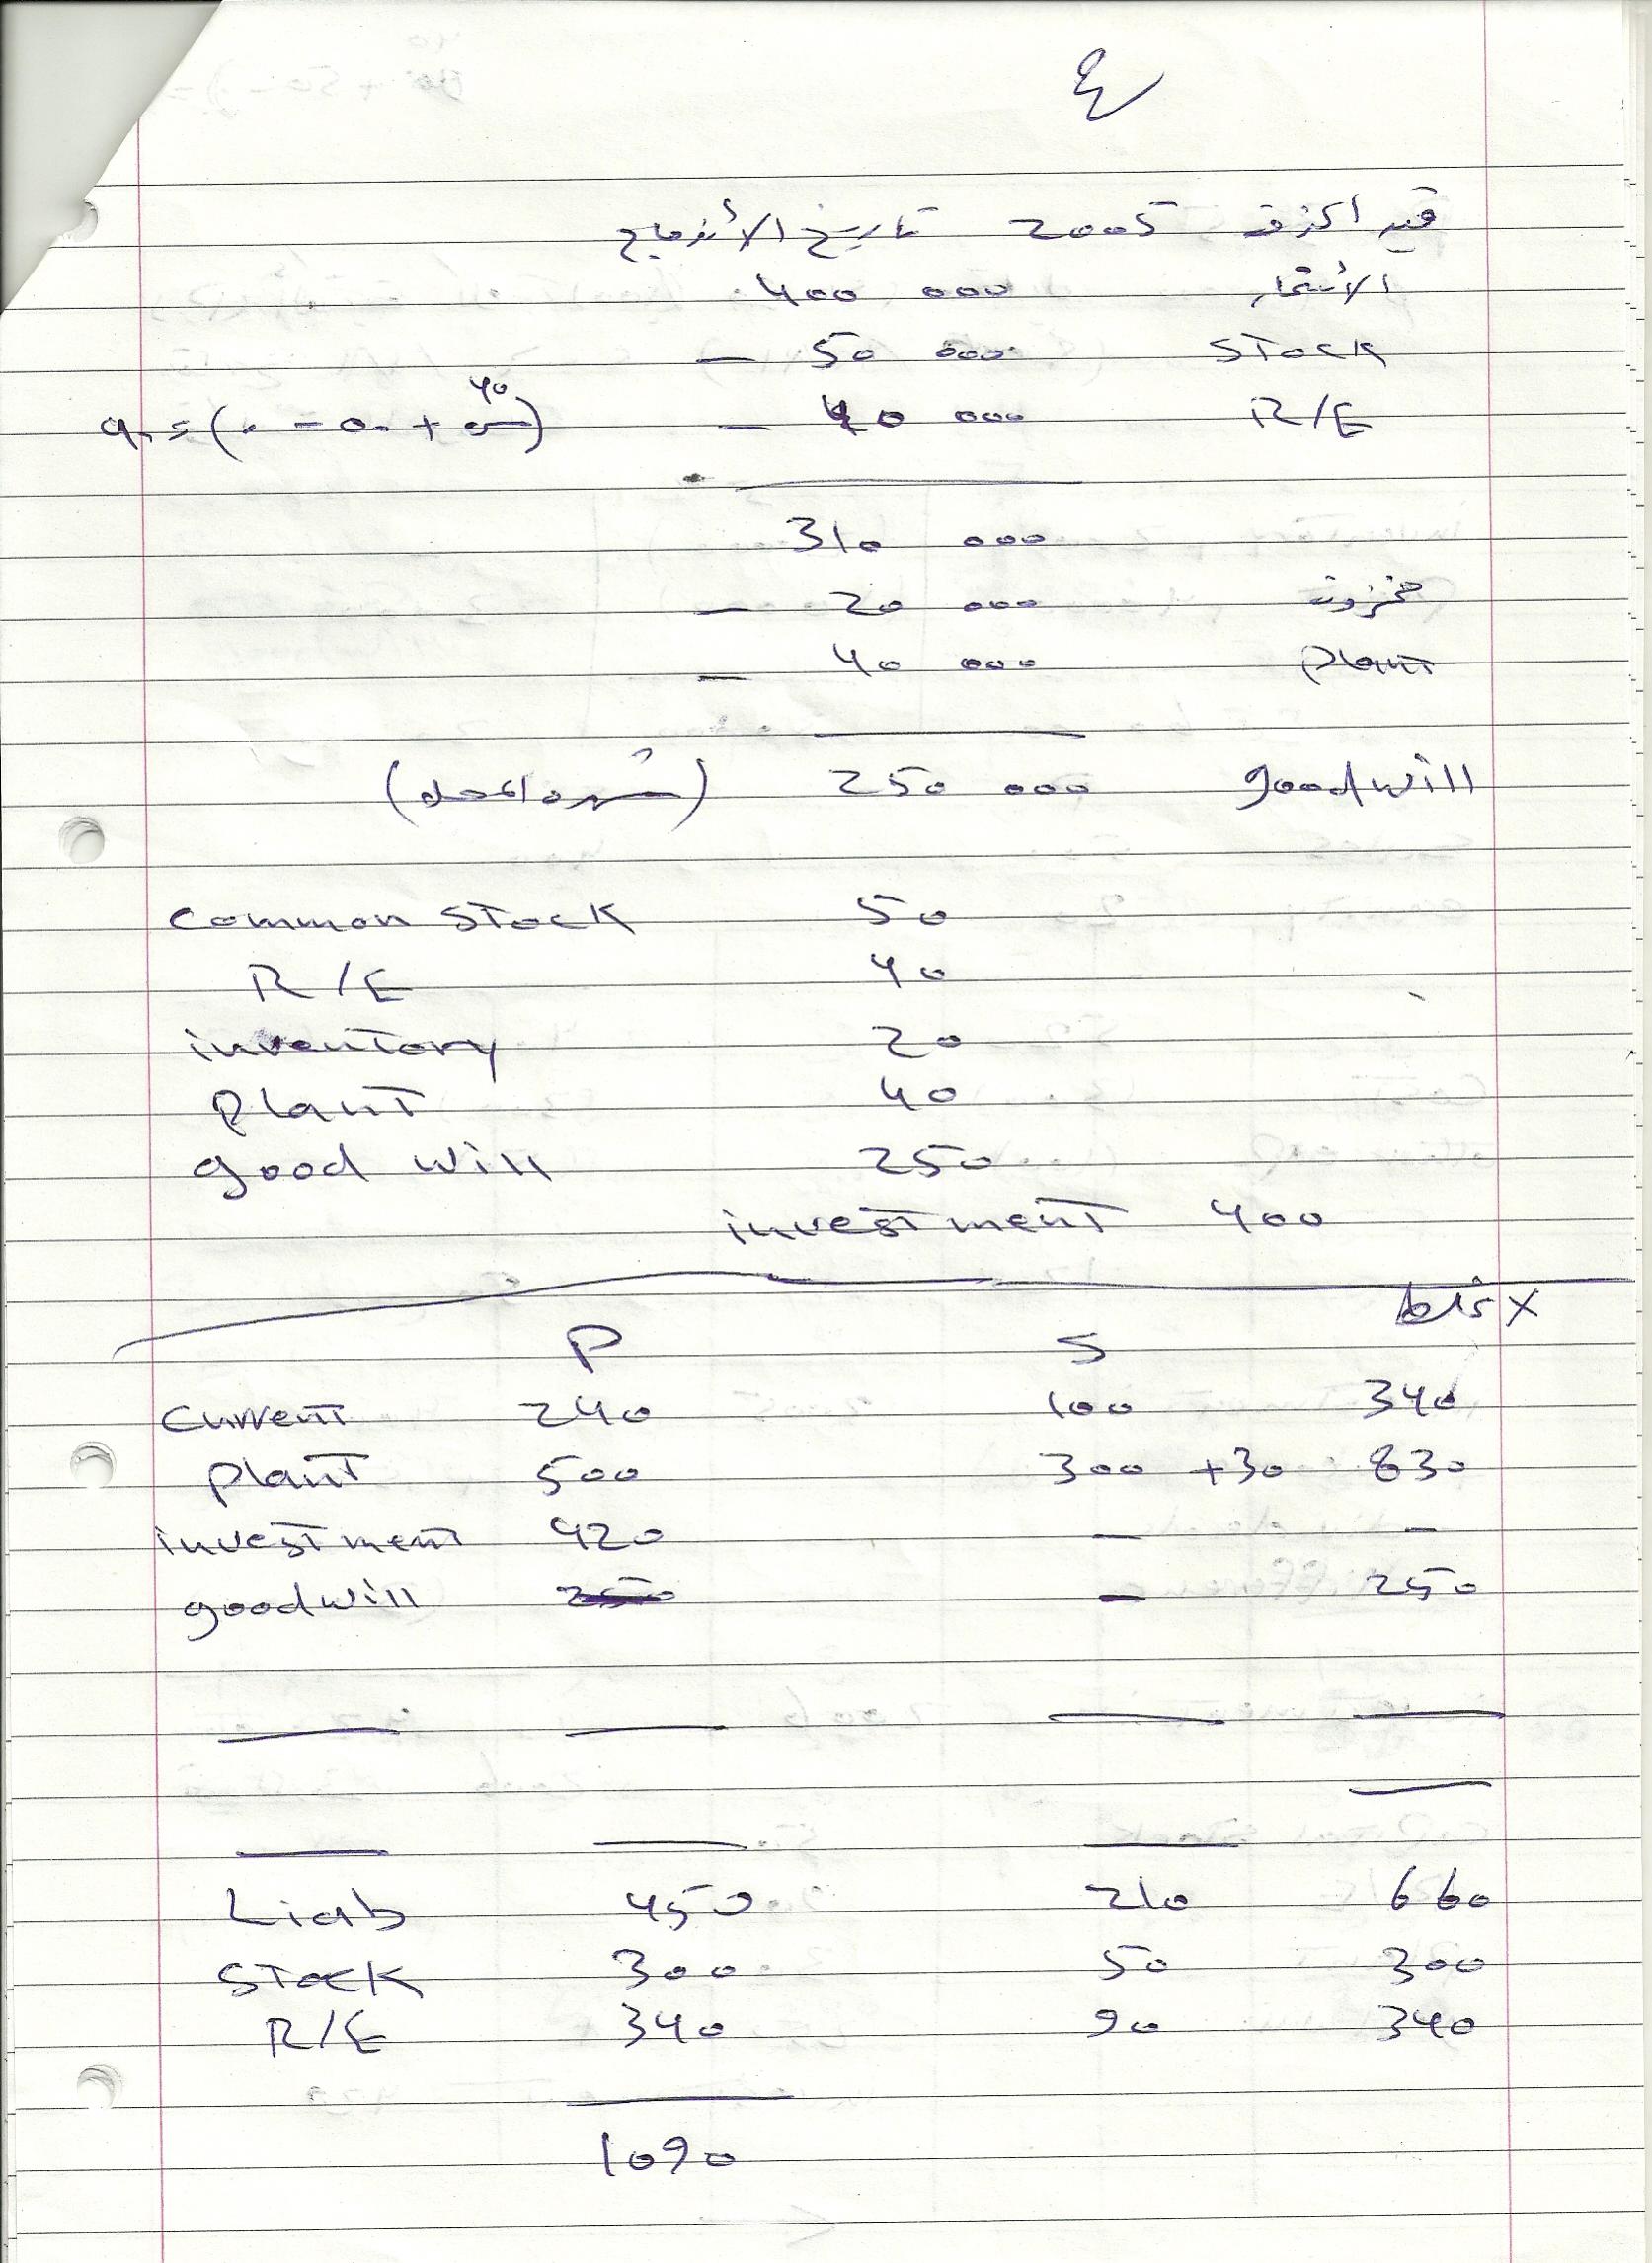 ٤
قيد الحذف 2005 تاريخ الأندماج
400 000 الأستثمار
- 50 000 Stock
- 40 000 R/E
310 000
- 20 000 مخزون
- 40 000 plant
(شهره المحل) 250 000 goodwill
Common Stock 50
R/E 40
inventory 20
Plant 40
good will 250
investment 400
P S
Current 240 100 340
plant 500 300 +30 830
investment 420 - -
goodwill - 250
Liab 450 210 660
Stock 300 50 300
R/E 340 90 340
1090